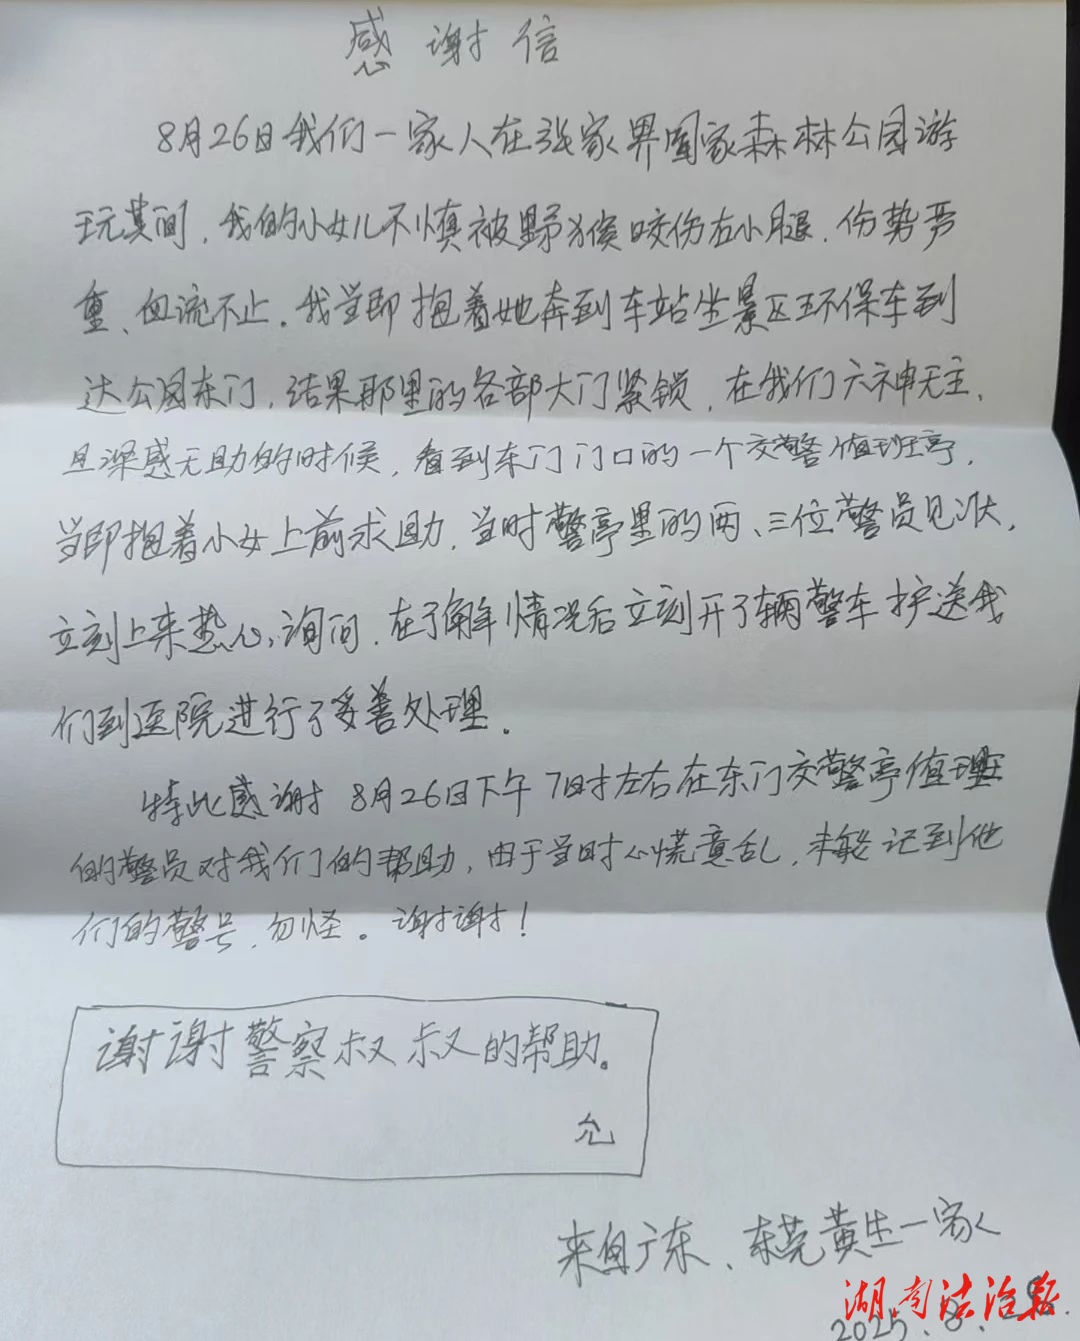 感谢信
8月26日我们一家人在张家界国家森林公园游
玩其间，我的小女儿不慎被野猴咬伤右小腿，伤势严
重、血流不止。我当即抱着她奔到车站坐景区环保车到
达公园东门，结果那里的各部大门紧锁，在我们六神无主、
且深感无助的时候，看到东门门口的一个交警值班亭，
当即抱着小女上前求助，当时警亭里的两、三位警员见状，
立刻上来热心询问，在了解情况后立刻开了辆警车护送我
们到医院进行了妥善处理。
特此感谢8月26日下午7时左右在东门交警亭值理
的警员对我们的帮助，由于当时心慌意乱，未能记到他
们的警号，勿怪。谢谢！
谢谢警察叔叔的帮助。
允
来自广东、东莞黄生一家人
湖南法治报
2025.8.28.